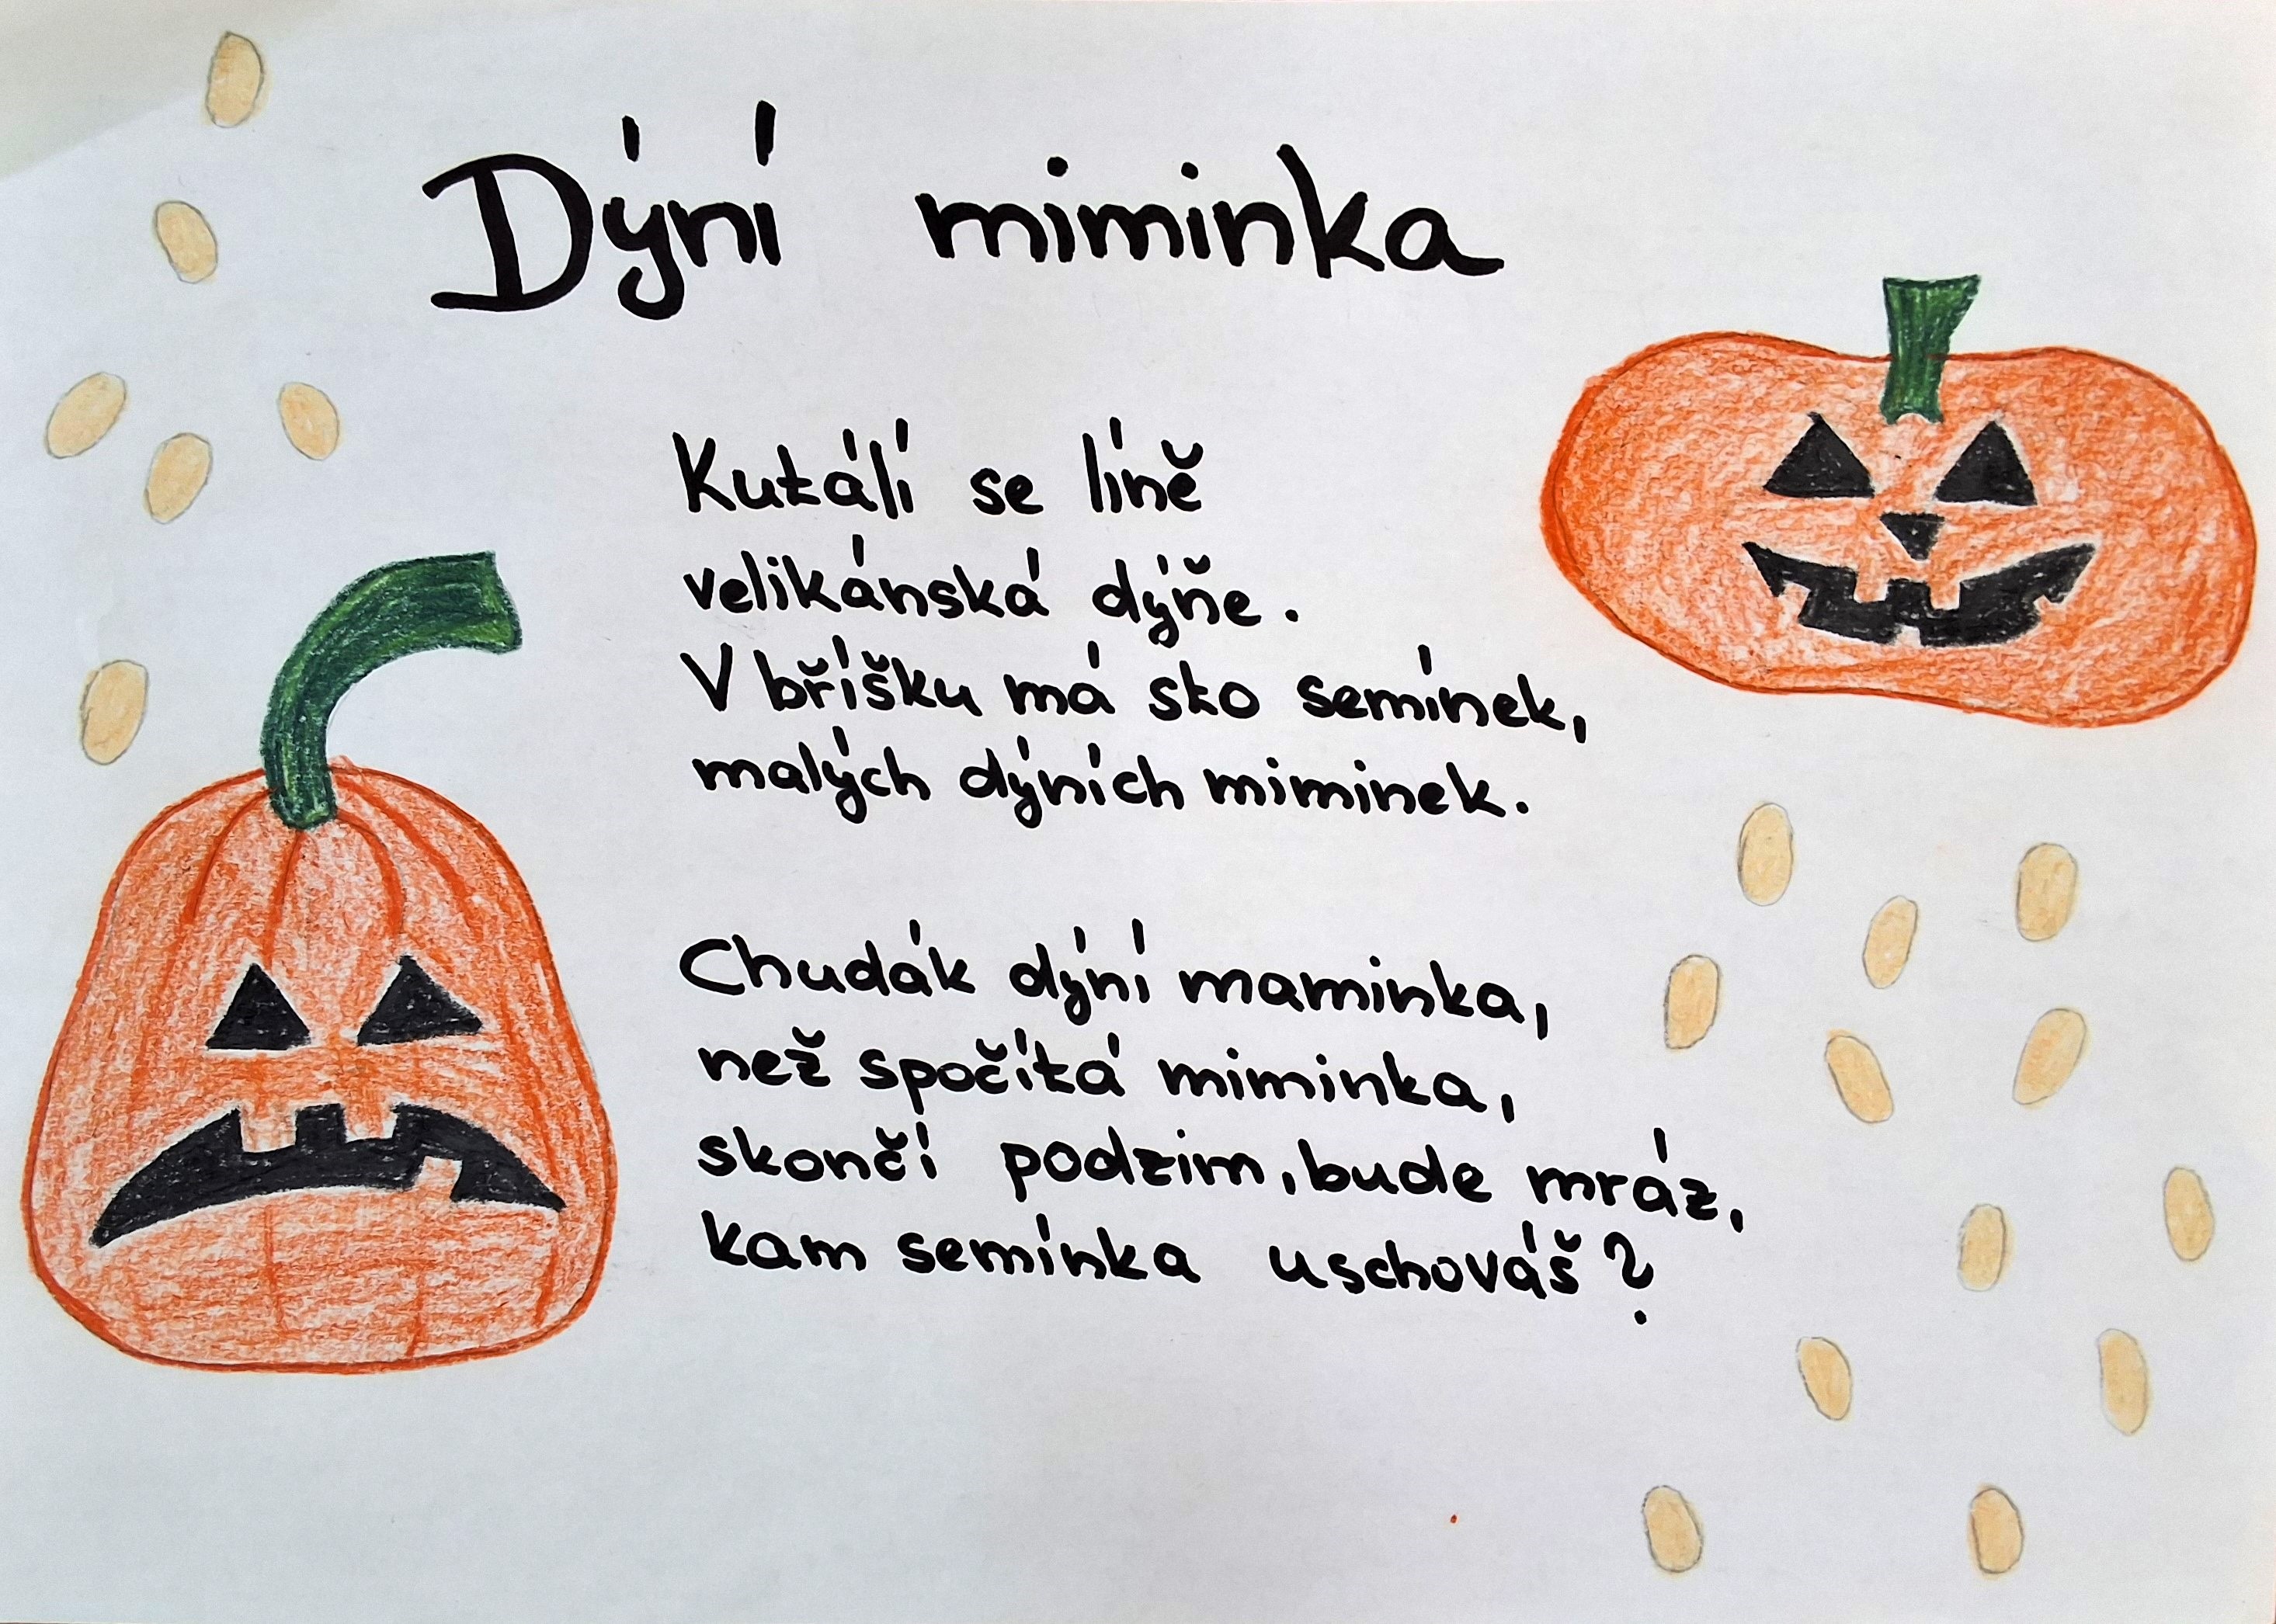 Dýní miminka
Kutálí se líně
velikánská dýňe.
V bříšku má sto semínek,
malých dýních miminek.
Chudák dýní maminka,
než spočítá miminka,
skončí podzim, bude mráz,
kam semínka uschováš?